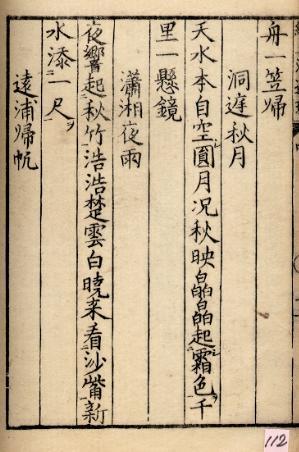 舟一笠歸
洞遲秋月
天水本自空圓月况秋映皛皛起霜色千
里一懸鏡
瀟湘夜雨
夜響起秋竹浩浩楚雲白曉来看沙觜新
水添一尺
遠浦歸帆
112